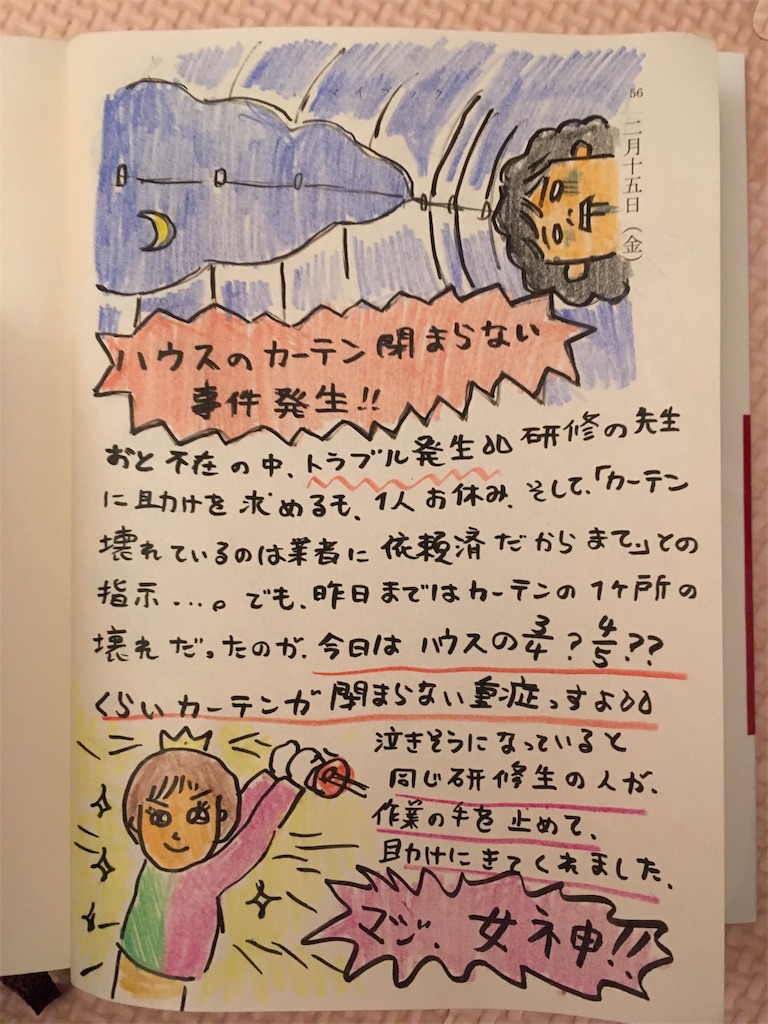 マイブック
56
二月十五日（金）
ハウスのカーテン閉まらない
事件発生!!
おと不在の中、トラブル発生。研修の先生
に助けを求めるも、1人お休み、そして、「カーテン
壊れているのは業者に依頼済だからまて」との
指示...。でも、昨日まではカーテンの1ヶ所の
壊れだったのが、今日はハウスの3/4?4/5??
くらいカーテンが閉まらない重症っすよ
泣きそうになっていると
同じ研修生の人が、
作業の手を止めて、
助けにきてくれました、
マジ、女ネ申!!